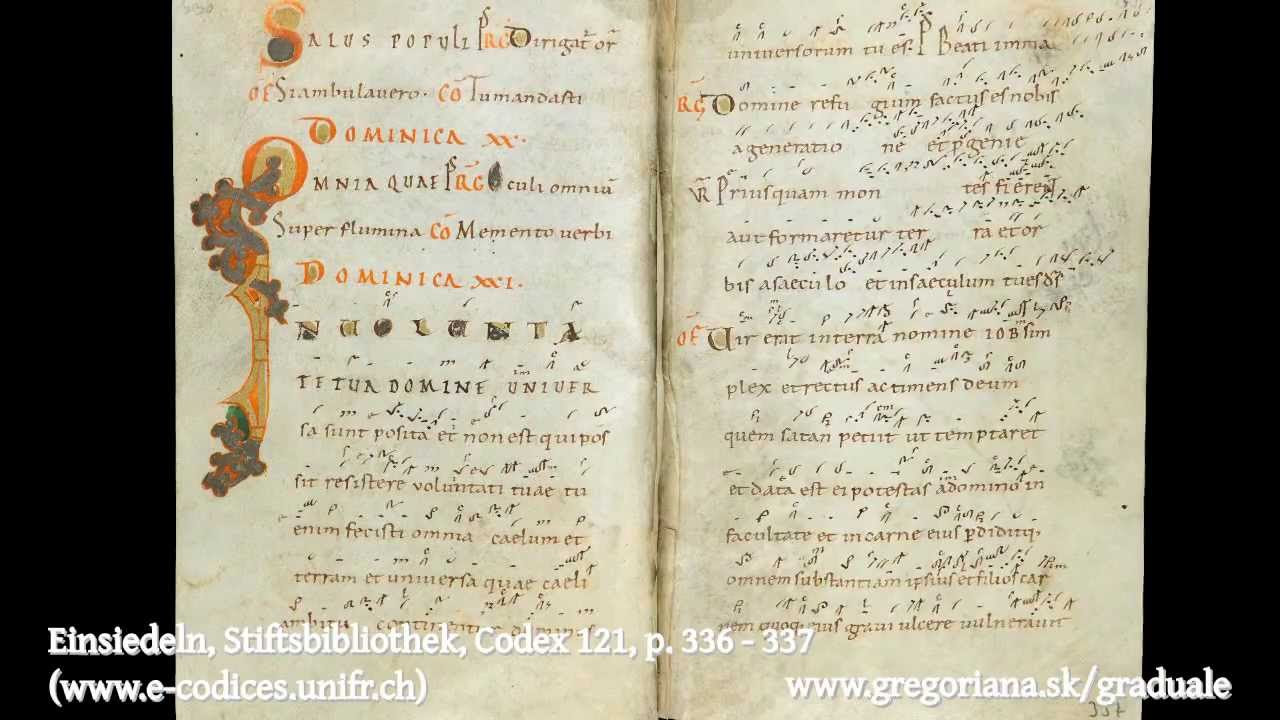 SALUS POPULI PRG Dirigat̄ or̄
OF̄ Si ambulavero. CO̅ Tu mandasti
DOMINICA XX.
OMNIA QUAE P RG Oculi omniū
Super flumina CO̅ Memento verbi
DOMINICA XXI.
IN UOLUNTA
TE TUA DOMINE UNIUER
sa sunt posita et non est qui pos
sit resistere voluntati tuae tu
enim fecisti omnia caelum et
terram et universa quae caeli
ambitu continentur dominus
universorum tu es. P Beati inma
RG Domine refugium factus es nobis
a generatione et p̄genie
VR Priusquam montes fierent
aut formaretur terra et or
bis a saeculo et in saeculum tu es d̄s
OF̄ Uir erat in terra nomine IOB sim
plex et rectus ac timens deum
quem satan petiit ut temptaret
et data est ei potestas a domino in
facultate et in carne eius p̄diditq;
omnem substantiam ipsius et filios car
nem quoq; eius gravi ulcere vulneravit
337
Einsiedeln, Stiftsbibliothek, Codex 121, p. 336 - 337
(www.e-codices.unifr.ch)
www.gregoriana.sk/graduale